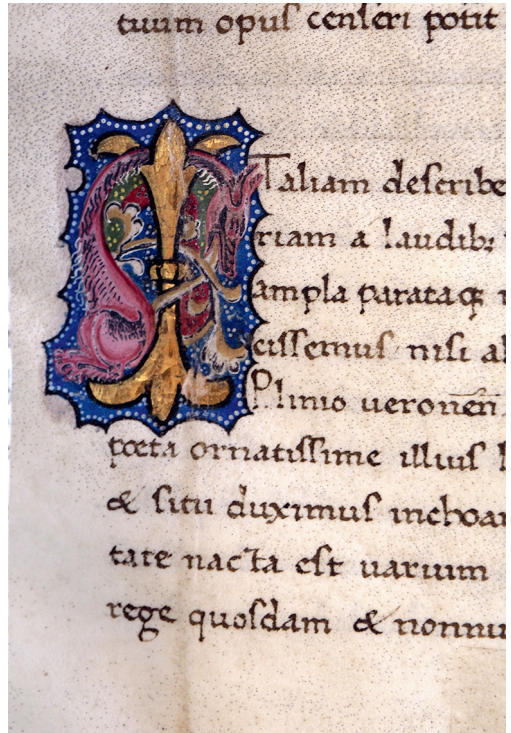 tuum opus censeri potit
ITaliam describe
riam a laudib;
ampla parataq;
cissemus nisi al
Plinio ueronen̄
poeta ornatissime illius l
& situ duximus inchoar
tate nacta est uarium
rege quosdam & nonnu